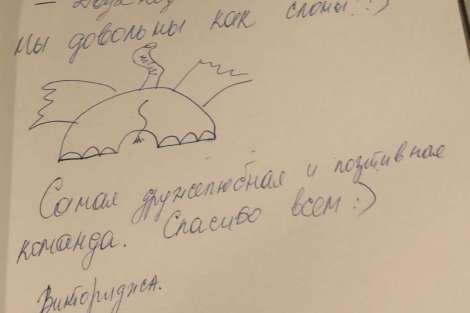 Мы довольны как слоны!:)
Самая дружелюбная и позтивная
команда. Спасибо всем:)